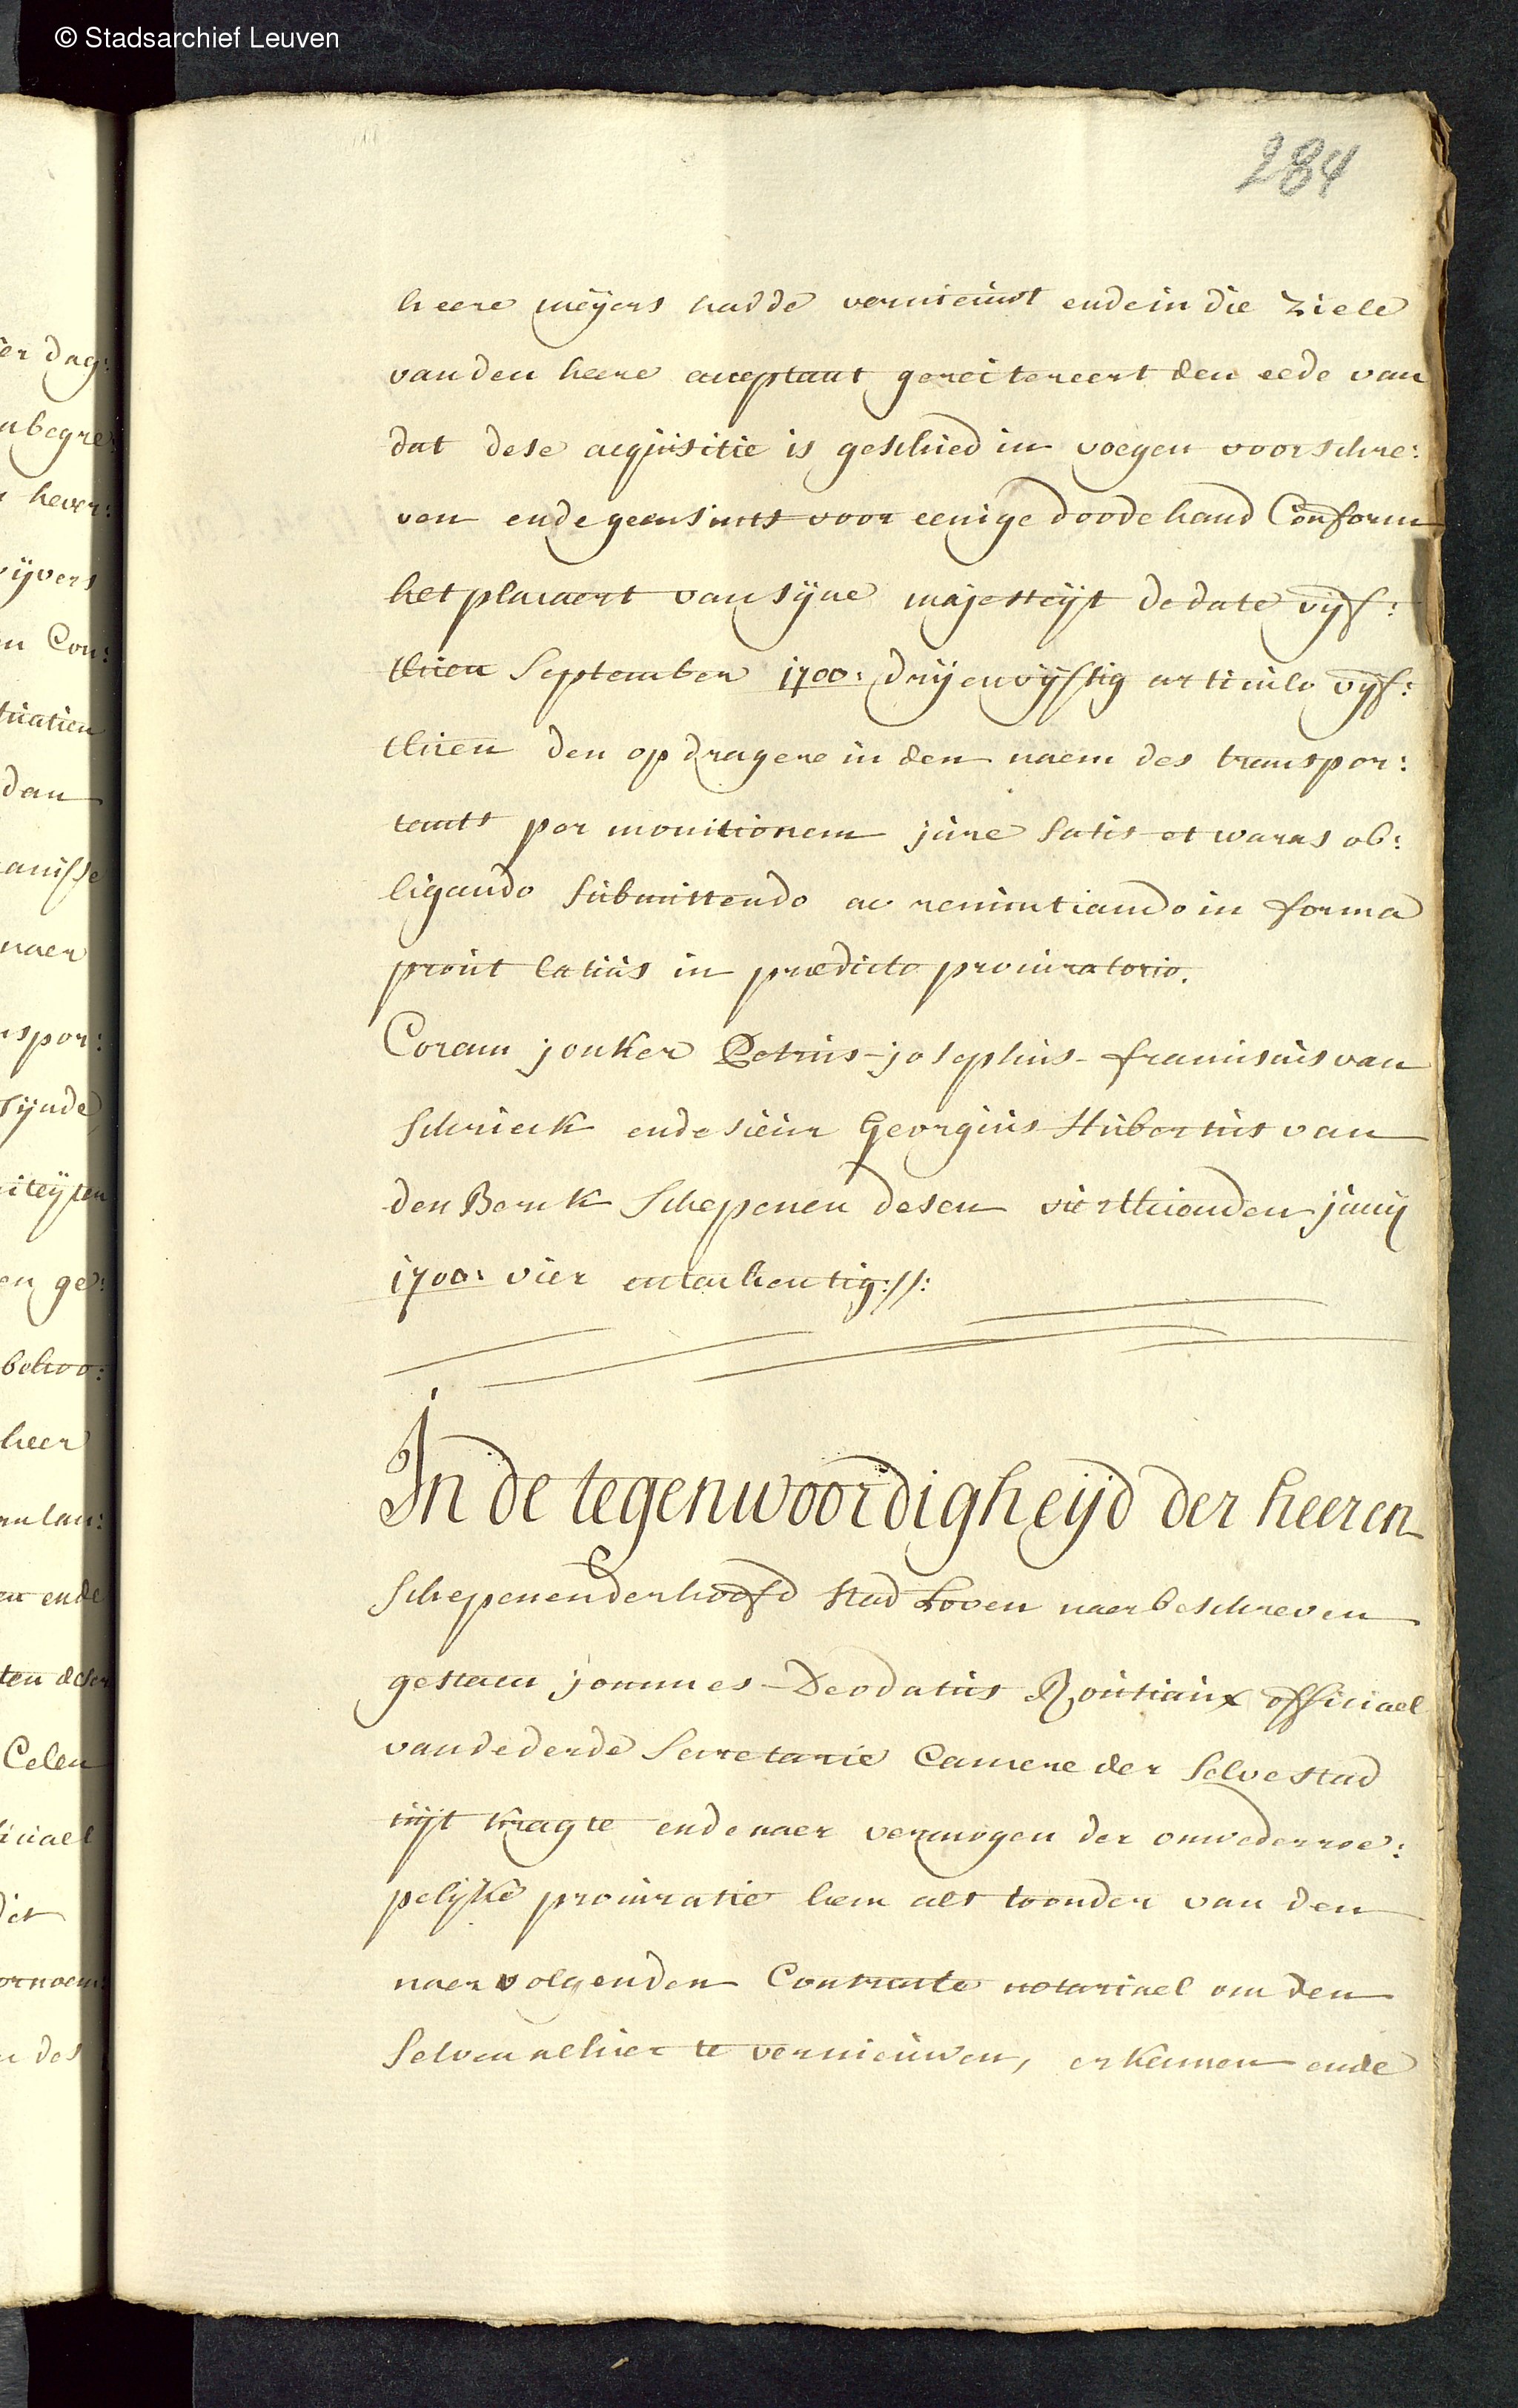 © Stadsarchief Leuven
284
heere meÿers hadde vernieuwt ende in die Ziele
van den heere acceptant gereitereert den eede van
dat dese acquisitie is geschied in voegen voorschre:
ven ende geensints voor eenige doode hand Conform
het placaert van sijne majesteÿt de date vijf:
thien September 1700: drij en vijftig articulo vijf:
thien den opdragere in den naem des transpor:
tants per monitionem jure satis et waras ob:
ligando submittendo ac renuntiando in forma
prout latius in prædicto procuratorio.
Coram jonker Petrus-josephus-franciscus van
Schrieck ende sieur Georgius Hubertus van
den Berck Schepenen desen vierthienden junij
1700: vier entachentig://:
In de tegenwoordigheijd der heeren
Schepenen der hoofd stad Loven naerbeschreven
gestaen joannes-Deodatus Routiaux officiael
van de derde Secretarie Camere der Selve stad
uijt kragte ende naer vermogen der onwederroe:
pelijke procuratie hem als toonder van den
naervolgenden Contracte notariael om den
Selven alhier te vernieuwen, erkennen ende
er dag:
nbegre:
hever:
ijvers
n Con:
tuatien
dan
anisse
naer
nspor:
sijnde
iteijten
en ge:
behoo:
heer
en ende
ten deser
Celen
iciael